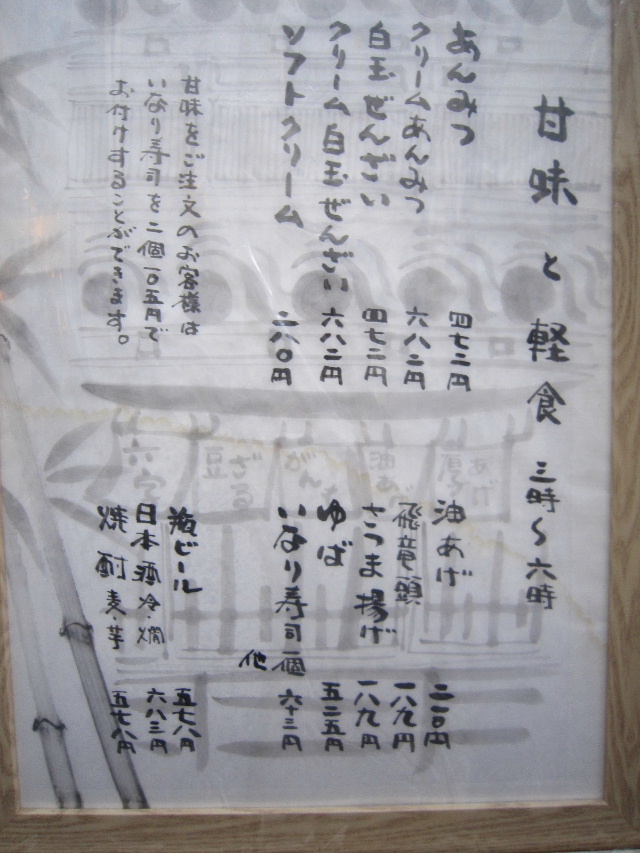 甘味と軽食 三時〜六時
あんみつ 四七二円
クリームあんみつ 六八二円
白玉ぜんざい 四七二円
クリーム白玉ぜんざい 六八二円
ソフトクリーム 二八〇円
甘味をご注文のお客様は
いなり寿司を二個一〇五円で
お付けすることができます。
油あげ 二一〇円
飛竜頭 一八九円
さつま揚げ 一八九円
ゆば 五二五円
いなり寿司一個 六十三円
他
瓶ビール 五七八円
日本酒 冷・燗 六八三円
焼酎 麦・芋 五七八円